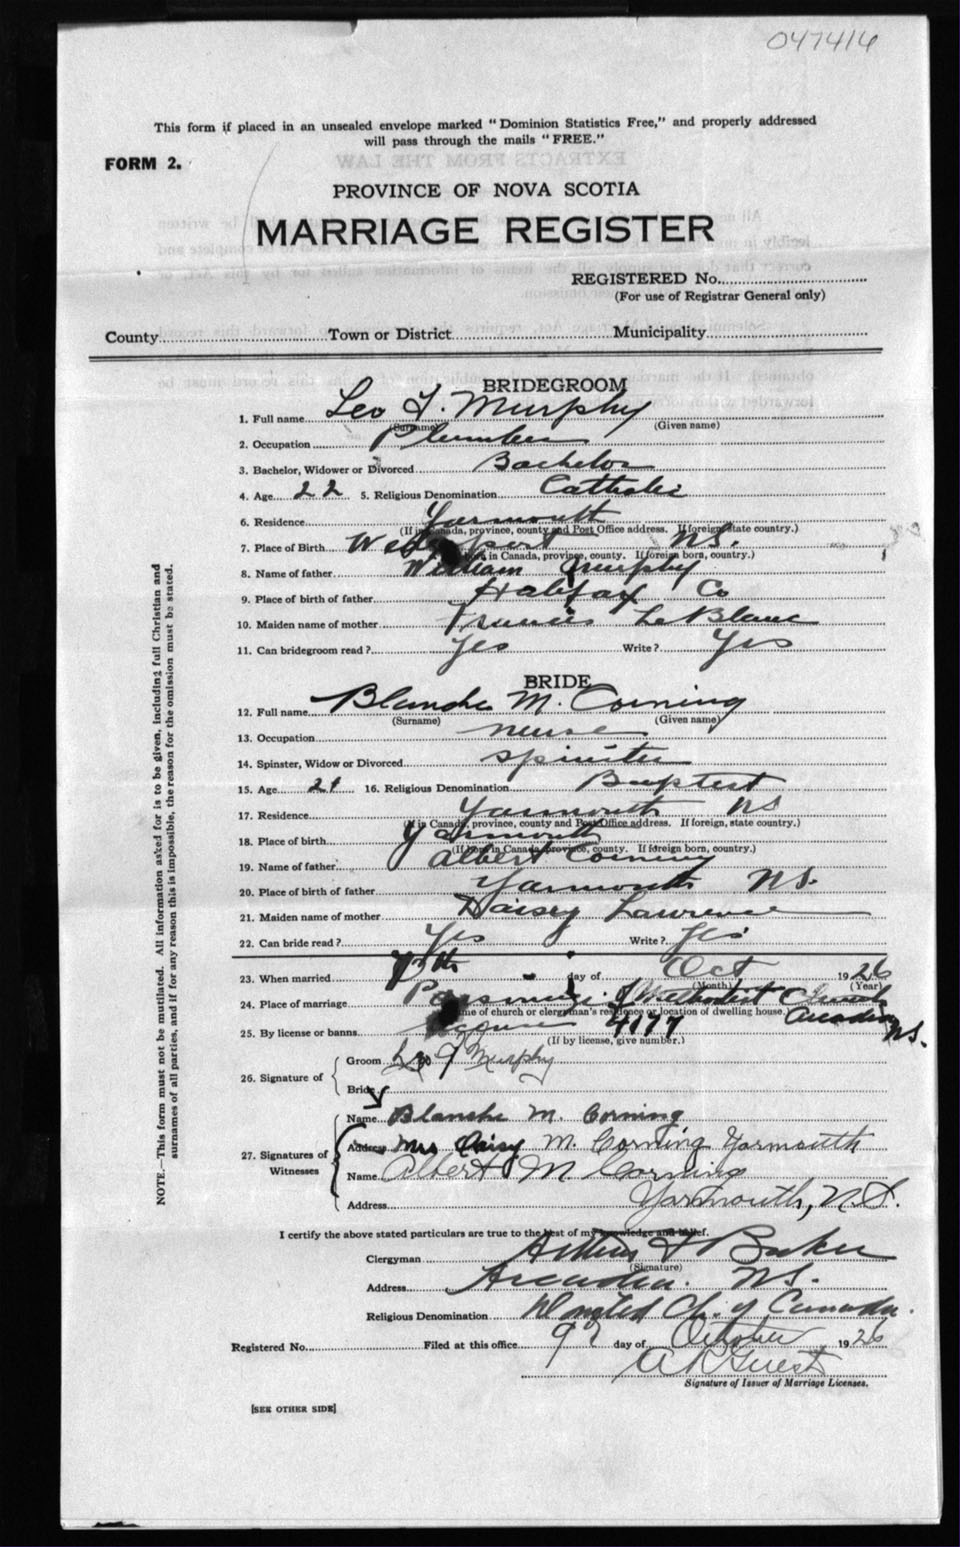 047416
This form if placed in an unsealed envelope marked "Dominion Statistics Free," and properly addressed
will pass through the mails "FREE."
FORM 2.
PROVINCE OF NOVA SCOTIA
MARRIAGE REGISTER
REGISTERED No.
(For use of Registrar General only)
County Town or District Municipality
BRIDEGROOM
1. Full name Leo F. Murphy
(Surname) (Given name)
2. Occupation Plumber
3. Bachelor, Widower or Divorced Bachelor
4. Age 22 5. Religious Denomination Catholic
6. Residence Yarmouth
(If in Canada, province, county and Post Office address. If foreign, state country.)
7. Place of Birth N.S.
born in Canada, province, county. If foreign born, country.)
8. Name of father William Murphy
9. Place of birth of father Halifax Co
10. Maiden name of mother Francis LeBlanc
11. Can bridegroom read? Yes Write? Yes
BRIDE
12. Full name Blanche M. Corning
(Surname) (Given name)
13. Occupation nurse
14. Spinster, Widow or Divorced Spinster
15. Age 21 16. Religious Denomination Baptist
17. Residence Yarmouth NS
(If in Canada, province, county and Post Office address. If foreign, state country.)
18. Place of birth Yarmouth
(If born in Canada, province, county. If foreign born, country.)
19. Name of father Albert Corning
20. Place of birth of father Yarmouth NS.
21. Maiden name of mother Daisy Lawrence
22. Can bride read? Yes Write? Yes
23. When married 13th day of Oct 1926
(Month) (Year)
24. Place of marriage Parsonage of Methodist Church
Name of church or clergyman's residence or location of dwelling house. Arcadia NS.
25. By license or banns License 4177
(If by license, give number.)
26. Signature of
Groom Leo F Murphy
Bride
27. Signatures of Witnesses
Name Blanche M. Corning
Address Mrs Daisy M. Corning Yarmouth
Name Albert M Corning
Address Yarmouth, N.S.
I certify the above stated particulars are true to the best of my knowledge and belief.
Clergyman Baker
(Signature)
Address Arcadia. NS.
Religious Denomination United Ch. of Canada.
Registered No. Filed at this office day of October 1926
A R Guest
Signature of Issuer of Marriage Licenses.
[SEE OTHER SIDE]
NOTE.—This form must not be mutilated. All information asked for is to be given, including full Christian and
surnames of all parties, and if for any reason this is impossible, the reason for the omission must be stated.